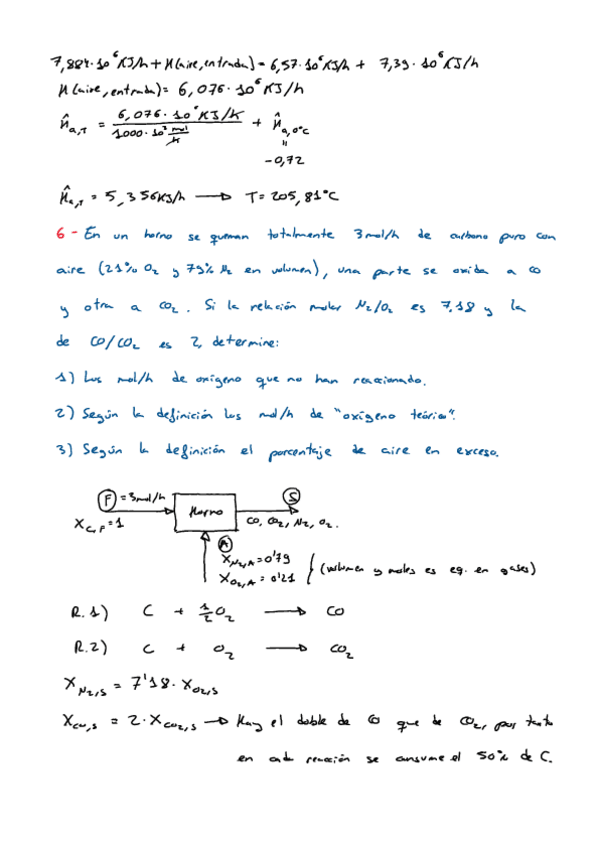 7,884·10⁶ KJ/h + H(aire, entrada) = 6,57·10⁶ KJ/h + 7,39·10⁶ KJ/h
H(aire, entrada) = 6,076·10⁶ KJ/h
Ĥa,T = 6,076·10⁶ KJ/h / 1000·10³ mol/h + Ĥa,0°C
=
-0,72
Ĥa,T = 5,356 KJ/h → T = 205,81°C
6 - En un horno se queman totalmente 3 mol/h de carbono puro con
aire (21% O₂ y 79% N₂ en volumen), una parte se oxida a CO
y otra a CO₂. Si la relación molar N₂/O₂ es 7,18 y la
de CO/CO₂ es 2, determine:
1) Los mol/h de oxígeno que no han reaccionado.
2) Según la definición los mol/h de "oxígeno teórico".
3) Según la definición el porcentaje de aire en exceso.
F = 3 mol/h
Horno
S
X C,F = 1
CO, CO₂, N₂, O₂.
A
X N₂,A = 0'79
X O₂,A = 0'21
(volumen y moles es eq. en gases)
R.1) C + 1/2 O₂ → CO
R.2) C + O₂ → CO₂
X N₂,S = 7'18 · X O₂,S
X CO,S = 2 · X CO₂,S → Hay el doble de CO que de CO₂, por tanto
en cada reacción se consume el 50% de C.